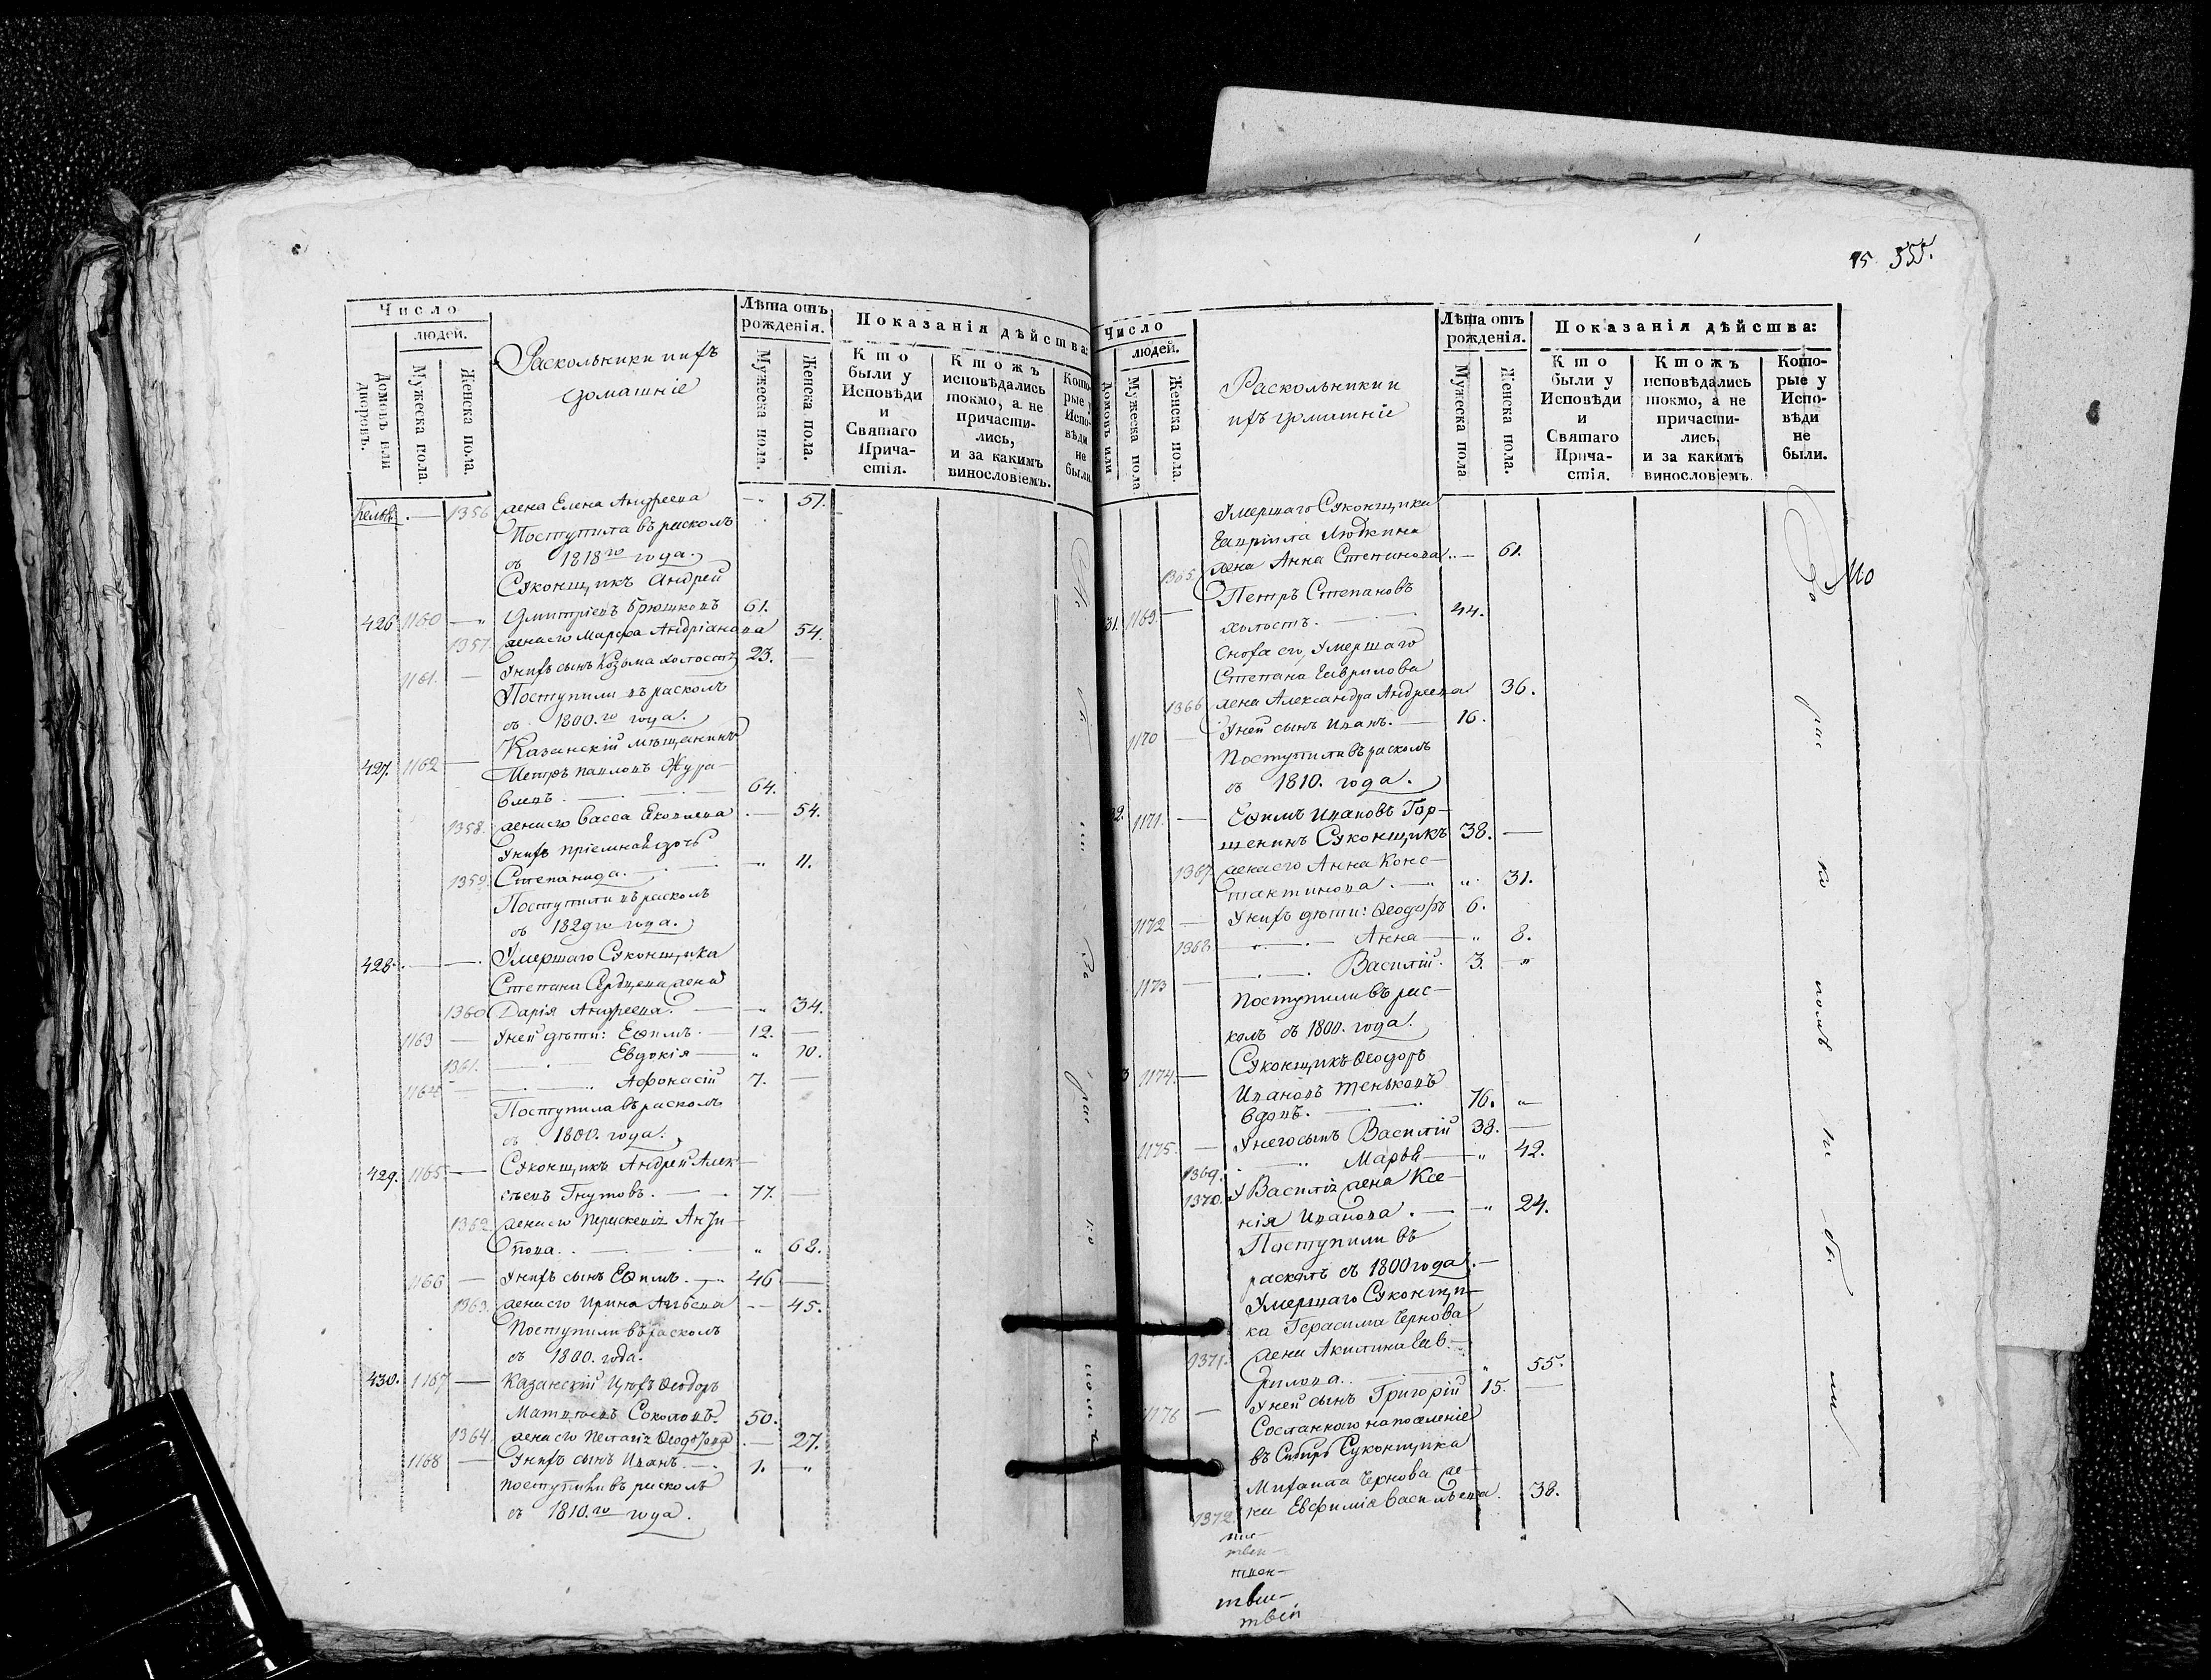 Число
людей.
Домовъ или дворовъ.
Мужеска пола.
Женска пола.
Раскольники и ихъ
домашніе
Лѣта отъ
рожденія.
Мужеска пола.
Женска пола.
Показанія дѣйства:
Кто
были у
Исповѣди
и
Святаго
Прича-
стія.
Ктожъ
исповѣдались
токмо, а не
причасти-
лись,
и за какимъ
винословіемъ.
Кото-
рые у
Испо-
вѣди
не
были.
1356 жена Елена Андреева 51.
Поступила въ расколъ
съ 1818го года.
Суконщикъ Андрей
426 1160 — Дмитріевъ Брюшковъ 61.
1357. жена его Марѳа Андріанова 54.
1161. — У нихъ сынъ Козьма холостъ 23. —
Поступили въ расколъ
съ 1800.го года.
Казанскій мѣщанинъ
427. 1162 — Петръ Павловъ Жура-
влевъ. 64.
1358. жена его Васса Яковлева 54.
У нихъ пріемная дочь
1359. Степанида. 11.
Поступили въ расколъ
съ 1829го года.
428. — Умершаго Суконщика
Степана жена
1360 Дарія Андреева. 34.
1163 — У ней дѣти: Ефимъ. 12. —
1361. Евдокія 10.
1164 Афонасій 7. —
Поступила въ расколъ
съ 1800. года.
429. 1165 — Суконщикъ Андрей Алек-
сѣевъ Гнутовъ. 77. —
1362. жена его 
пова. 68.
1166 — У нихъ сынъ Ефимъ. 46 —
1363. жена его Ирина 45.
Поступили въ расколъ
съ 1800. года.
430. 1167 — Казанскій Ѳеодоръ
Матвѣевъ Соколовъ. 50.
1364. жена его Пелагія Ѳеодорова 27.
1168 — У нихъ сынъ Иванъ. 1.
поступили въ расколъ
съ 1810.го года.
75 555.
Число
людей.
Домовъ или
Мужеска пола
Женска пола.
Раскольники и
ихъ домашніе
Лѣта отъ
рожденія.
Мужеска пола
Женска пола.
Показанія дѣйства:
Кто
были у
Исповѣди
и
Святаго
Прича-
стія.
Ктожъ
исповѣдались
токмо, а не
причасти-
лись,
и за какимъ
винословіемъ.
Кото-
рые у
Испо-
вѣди
не
были.
Умершаго Суконщика
Гавріила
1365 жена Анна Степанова 61.
Петръ Степановъ
31. 1169. — холостъ. 44.
Сноха его, Умершаго
Степана Гаврилова
1366 жена Александра Андреева 36.
1170 — У ней сынъ Иванъ. 16.
Поступили въ расколъ
съ 1810. года.
32. 1171. — Ефимъ Ивановъ Гор-
шенинъ Суконщикъ 38. —
1367 жена его Анна Конс-
тантинова. 31.
1172 — У нихъ дѣти: Ѳеодоръ 6.
1368 Анна 8.
1173 — Василій. 3.
Поступили въ рас-
колъ съ 1800. года.
Суконщикъ Ѳеодоръ
3 1174. — Ивановъ Теньковъ
вдовъ. 76.
1175. — У него сынъ Василій 38. —
1369. Марья 42.
1370. У Василія жена Ксе-
нія Иванова. 24.
Поступили въ
расколъ съ 1800 года.
Умершаго Суконщи-
ка Герасима Чернова
1371. жена Акилина Гав-
рилова. 55.
1176 — У ней сынъ Григорій 15. —
Сосланнаго на поселеніе
въ Сибирь Суконщика
Михаила Чернова же-
1372 на Евфимія Васильева. 38.